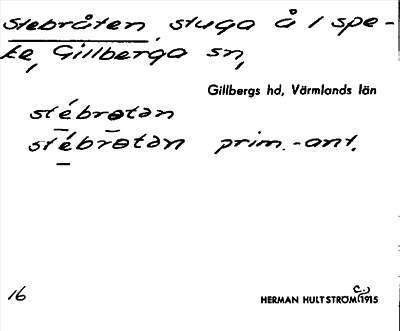 Stebråten, stuga å 1 spe-
ke, Gillberga sn,
Gillbergs hd, Värmlands län
stébrɵtən
stébrɵtən prim.-ant.
16
HERMAN HULTSTRÖM (c.) 1915